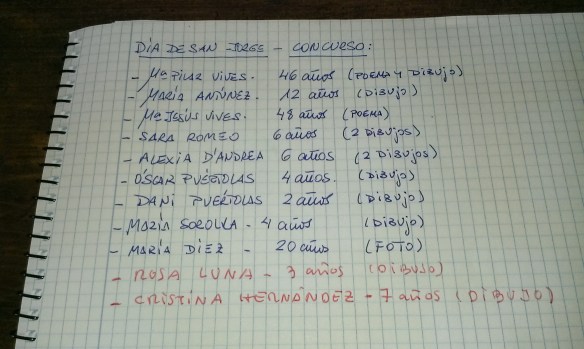 DÍA DE SAN JORGE - CONCURSO:
- Mª PILAR VIVES. 46 años (POEMA Y DIBUJO)
- MARÍA ANTÚNEZ. 12 años (DIBUJO)
- Mª JESÚS VIVES. 48 años (POEMA)
- SARA ROMEO 6 años (2 DIBUJOS)
- ALEXIA D'ANDREA 6 años (2 DIBUJOS)
- ÓSCAR PUÉRTOLAS 4 años. (DIBUJO)
- DANI PUÉRTOLAS 2 años (DIBUJO)
- MARÍA SOROLLA - 4 años (DIBUJO)
- MARÍA DIEZ - 20 años (FOTO)
- ROSA LUNA - 3 años (DIBUJO)
- CRISTINA HERNÁNDEZ - 7 años (DIBUJO)